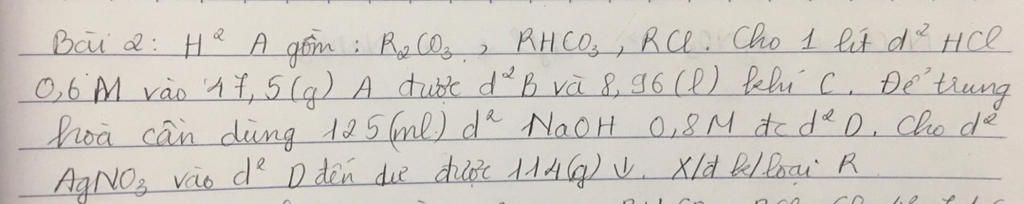 Bài 2: H² A gồm: R₂CO₃, RHCO₃, RCl. Cho 1 lít d² HCl
0,6M vào 47,5(g) A được d² B và 8,96(l) khí C. Để trung
hoà cần dùng 125(ml) d² NaOH 0,8M đc d² D. Cho d²
AgNO₃ vào d² D đến dư được 114(g) ↓. X/đ k/loại R